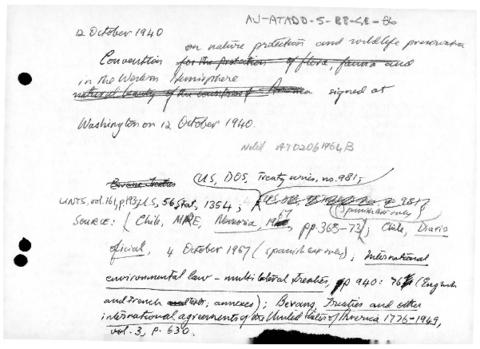 AU-ATADD-5-BB-GE-Bb
12 October 1940
on nature protection and wildlife preservation
Convention for the protection of flora, fauna and
in the Western Hemisphere
natural beauty of the countries of America signed at
Washington on 12 October 1940.
(US, DOS, Treaty series, no. 981;
UNTS, vol. 161, p. 193; US, 56 Stat. 1354;
(Spanish text only)
SOURCE: Chile, MRE, Memoria, pp. 365-73; Chile, Diario
oficial, 4 October 1967 (Spanish text only); International
environmental law - multilateral treaties, pp 940: 76 (English
and French texts, annexes); Bevans, Treaties and other
international agreements of the United States of America 1776-1949,
vol. 3, p. 630.